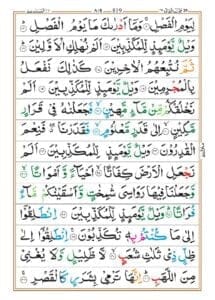 لِيَوْمِ الْفَصْلِ ۝ وَمَآ اَدْرٰىكَ مَا يَوْمُ الْفَصْلِ ۝
وَيْلٌ يَّوْمَئِذٍ لِّلْمُكَذِّبِيْنَ ۝ اَلَمْ نُهْلِكِ الْاَوَّلِيْنَ ۝
ثُمَّ نُتْبِعُهُمُ الْاٰخِرِيْنَ ۝ كَذٰلِكَ نَفْعَلُ
بِالْمُجْرِمِيْنَ ۝ وَيْلٌ يَّوْمَئِذٍ لِّلْمُكَذِّبِيْنَ ۝ اَلَمْ
نَخْلُقْكُّمْ مِّنْ مَّآءٍ مَّهِيْنٍ ۝ فَجَعَلْنٰهُ فِيْ قَرَارٍ
مَّكِيْنٍ ۝ اِلٰى قَدَرٍ مَّعْلُوْمٍ ۝ فَقَدَرْنَا ۖ فَنِعْمَ
الْقٰدِرُوْنَ ۝ وَيْلٌ يَّوْمَئِذٍ لِّلْمُكَذِّبِيْنَ ۝ اَلَمْ
نَجْعَلِ الْاَرْضَ كِفَاتًا ۝ اَحْيَآءً وَّاَمْوَاتًا ۝
وَّجَعَلْنَا فِيْهَا رَوَاسِيَ شٰمِخٰتٍ وَّاَسْقَيْنٰكُمْ مَّآءً
فُرَاتًا ۝ وَيْلٌ يَّوْمَئِذٍ لِّلْمُكَذِّبِيْنَ ۝ اِنْطَلِقُوْٓا
اِلٰى مَا كُنْتُمْ بِهٖ تُكَذِّبُوْنَ ۝ اِنْطَلِقُوْٓا اِلٰى
ظِلٍّ ذِيْ ثَلٰثِ شُعَبٍ ۝ لَّا ظَلِيْلٍ وَّلَا يُغْنِيْ
مِنَ اللَّهَبِ ۝ اِنَّهَا تَرْمِيْ بِشَرَرٍ كَالْقَصْرِ ۝